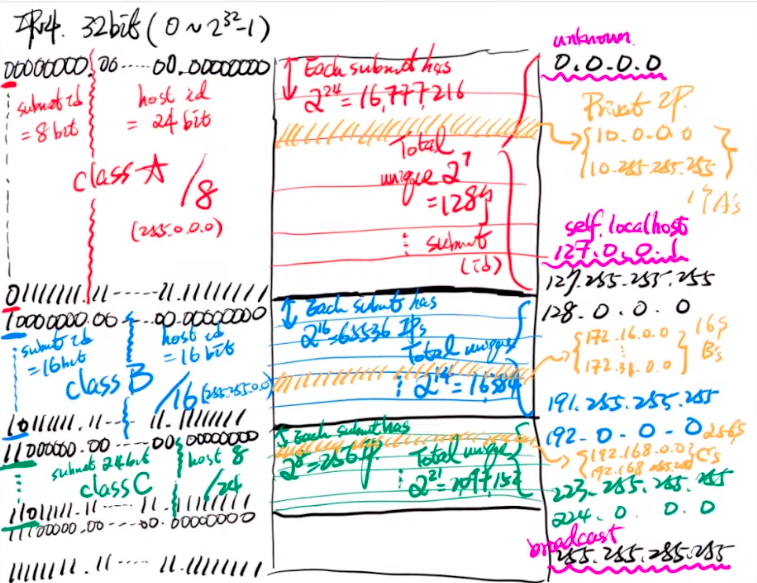 IPv4. 32bit (0 ~ 2^32-1)
00000000.00-----00.00000000
subnet id
= 8 bit
host id
= 24 bit
class A
/8
(255.0.0.0)
01111111.11-----11.11111111
10000000.00----00.00000000
subnet id
=16bit
host id
=16bit
class B
/16 (255.255.0.0)
1011111.11-----11.1111111
11000000.00-----00.00000000
subnet 24bit
host 8
class C
/24
1101111.11----11.1111111
11100000.00----00.00000000
1111111.11-----11.11111111
Each subnet has
2^24=16,777,216
Total
unique 2^7
=128
subnet
(id)
Each subnet has
2^16=65536 IPs
Total unique
2^14=16384
Each subnet has
2^8=256 IP
Total unique
2^21=2,097,152
unknown
0.0.0.0
Private IP.
10.0.0.0
10.255.255.255
A's
self. localhost
127.0.0.1
127.255.255.255
128.0.0.0
172.16.0.0
172.31.0.0
B's
191.255.255.255
192.0.0.0
192.168.0.0
192.168.255.255
C's
223.255.255.255
224.0.0.0
broadcast
255.255.255.255